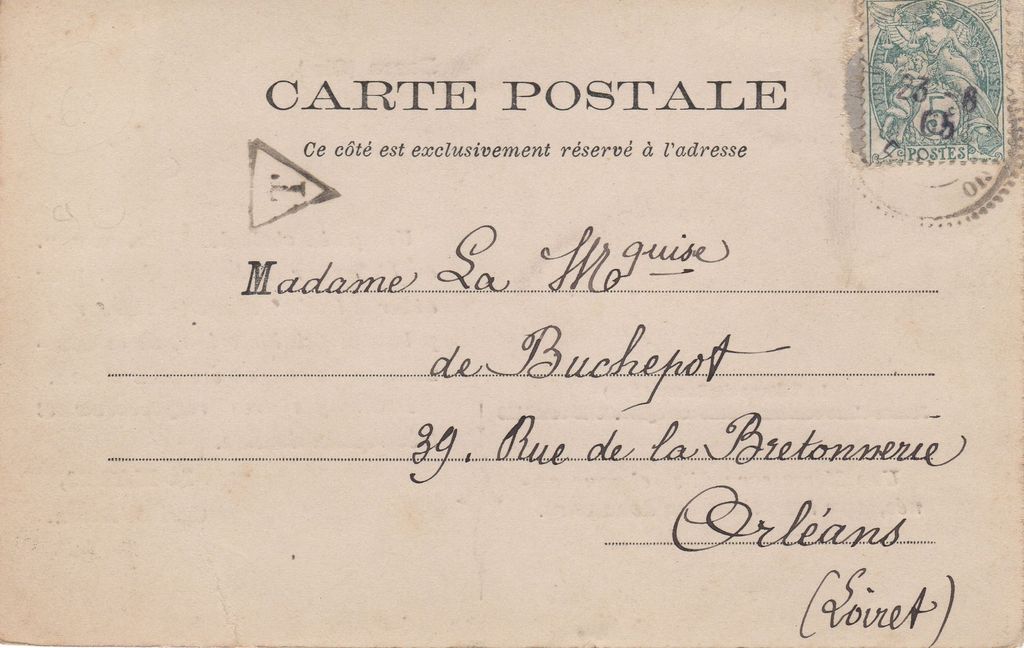 CARTE POSTALE
Ce côté est exclusivement réservé à l'adresse
T
POSTES
Madame La Mquise
de Buchepot
39. Rue de la Bretonnerie
Orléans
(Loiret)